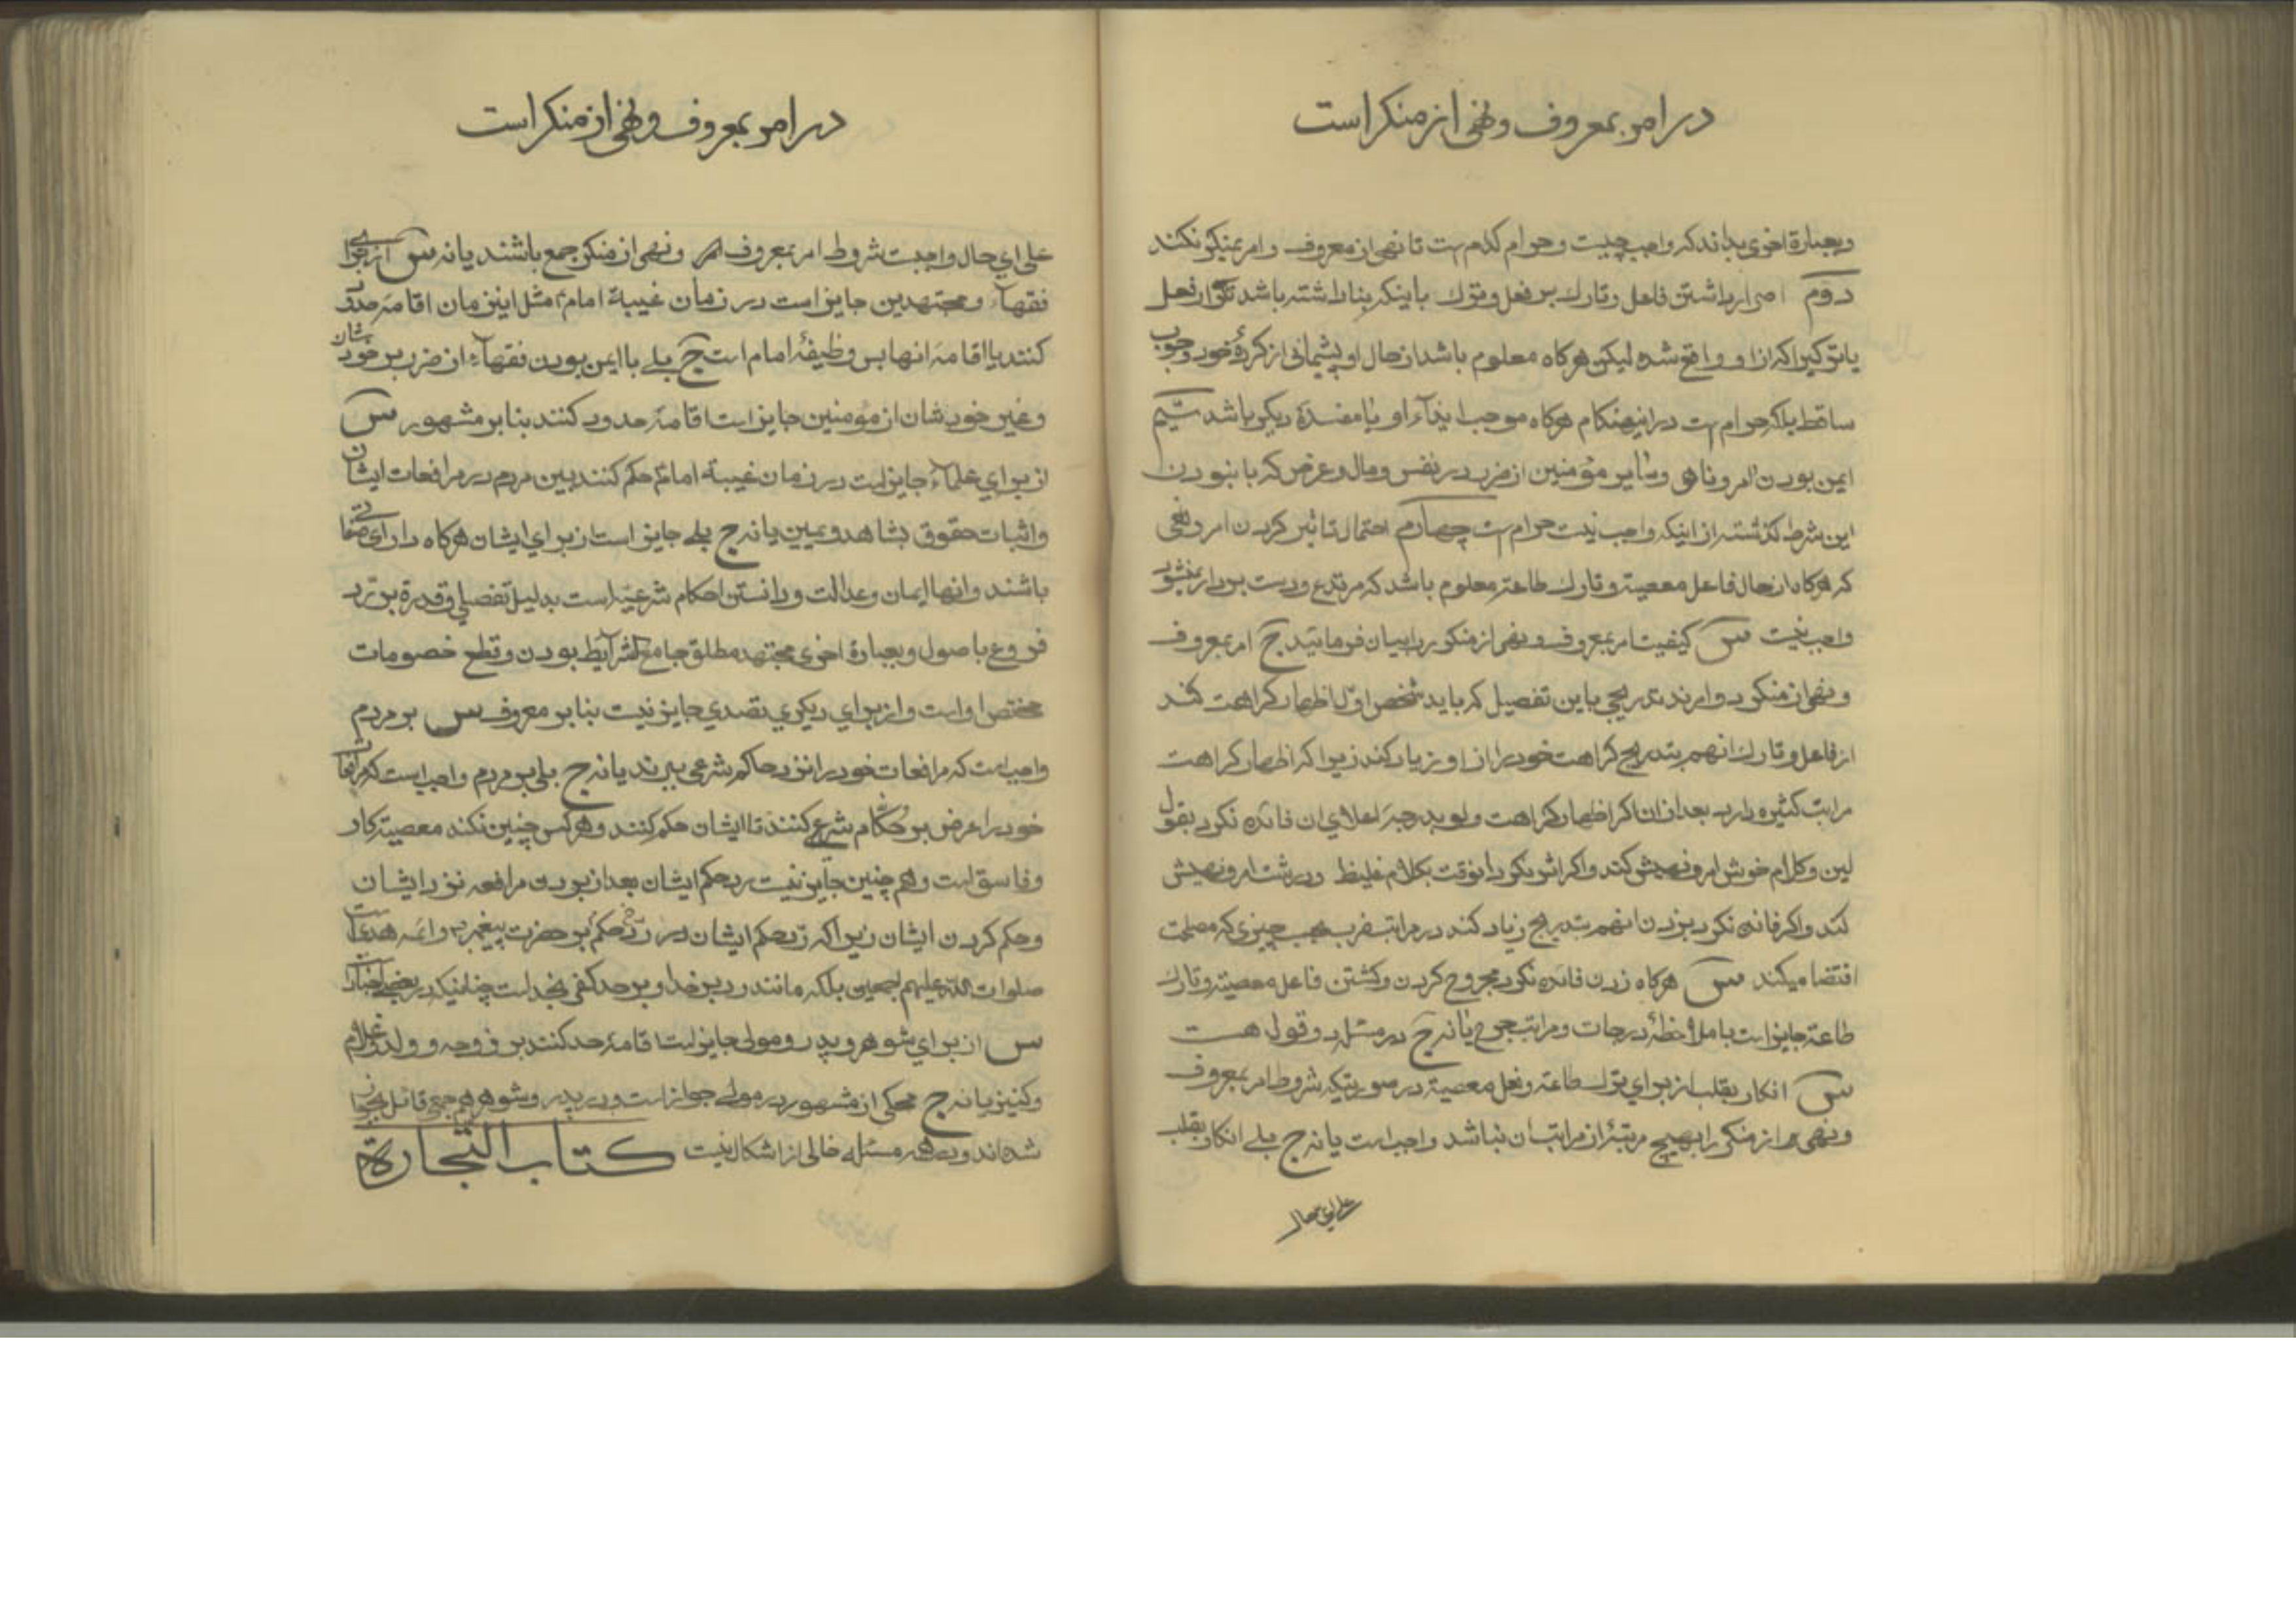 در امر بمعروف و نهی از منکر است
و بعبارة اخری بداند که واجب چیست و حرام کدام است تا نهی از معروف و امر بمنکر نکند
دوم اصرار داشتن فاعل و تارک بر فعل و ترک باینکه بنا داشته باشد تکرار فعل
یا ترکیرا که از او واقع شده لیکن هرکاه معلوم باشد از حال او پشیمانی از کردهٔ خود وجوب
ساقط بلکه حرام است در اینهنکام هرکاه موجب ایذاء او یا مفسدهٔ دیکر باشد سیم
ایمن بودن امر و ناهی و سایر مؤمنین از ضرر در نفس و مال و عرض که با نبودن
این شرط کذشته از اینکه واجب نیست حرام است چهارم احتمال تاثیر کردن امر و نهی
که هرکاه از حال فاعل معصیة و تارک طاعة معلوم باشد که مرتدع و دست بردار نمیشود
واجب نیست س کیفیت امر بمعروف و نهی از منکر را بیان فرمائید ج امر بمعروف
و نهی از منکر دو امرند تدریجی باین تفصیل که باید شخص اوّل اظهار کراهت کند
از فاعل و تارک انهم بتدریج کراهت خود را از او زیاد کند زیرا که اظهار کراهت
مراتب کثیره دارد بعد از ان اکر اظهار کراهت ولو بدرجهٔ اعلای ان فائده نکرد بقول
لین و کلام خوش امر و نهیش کند و اکر اثر نکرد انوقت بکلام غلیظ و درشت امر و نهیش
کند و اکر فائده نکرد بزدن انهم بتدریج زیاد کند در مراتب ضرب بحسب چیزی که مصلحت
اقتضا میکند س هرکاه زدن فائده نکرد مجروح کردن و کشتن فاعل معصیة و تارک
طاعة جایز است با ملاحظهٔ درجات و مراتب جرح یا نه ج در مسئله دو قول هست
س انکار بقلب از برای ترک طاعة و فعل معصیة در صورتیکه شروط امر بمعروف
و نهی از منکر را بهیچ مرتبهٔ از مراتب ان نباشد واجب است یا نه ج بلی انکار بقلب
علی ای حال
در امر بمعروف و نهی از منکر است
علی ای حال واجبست شروط امر بمعروف و نهی از منکر جمع باشند یا نه س از برای
فقهاء و مجتهدین جایز است در زمان غیبة امام مثل این زمان اقامهٔ حدود
کنند یا اقامهٔ انها بس وظیفهٔ امام است ج بلی با ایمن بودن فقهاء از ضرر بر خودشان
و غیر خودشان از مؤمنین جایز است اقامهٔ حدود کنند بنابر مشهور س
از برای علماء جایز است در زمان غیبة امام حکم کنند بین مردم در مرافعات ایشان
و اثبات حقوق بشاهد و یمین یا نه ج بلی جایز است از برای ایشان هرکاه دارای صفاتی
باشند و انها ایمان و عدالت و دانستن احکام شرعیّه است بدلیل تفصیلی و قدرة بر ردّ
فروع باصول و بعبارة اخری مجتهد مطلق جامع الشرایط بودن و قطع خصومات
مختص او است و از برای دیکری تصدی جایز نیست بنابر معروف س بر مردم
واجب است که مرافعات خود را نزد حاکم شرعی ببرند یا نه ج بلی بر مردم واجب است که مرافعات
خود را عرض بر حُکّام شرع کنند تا ایشان حکم کنند و هرکس چنین نکند معصیة کار
و فاسق است و هم چنین جایز نیست رد حکم ایشان بعد از بودن مرافعه نزد ایشان
و حکم کردن ایشان زیرا که ردّ حکم ایشان در ردّ حکم بر حضرت پیغمبر و ائمه هدی است
صلوات اللّه علیهم اجمعین بلکه مانند رد بر خدا و بر حد کفر بخدا است چنانیکه در بعضی اخبار
س از برای شوهر و پدر و مولی جایز است اقامهٔ حد کنند بر زوجه و ولد و غلام
و کنیز یا نه ج محکی از مشهور در مولی جواز است و در پدر و شوهر هم جمعی قائل بجواز
شده اند و هر مسئله خالی از اشکال نیست کتاب التّجارة